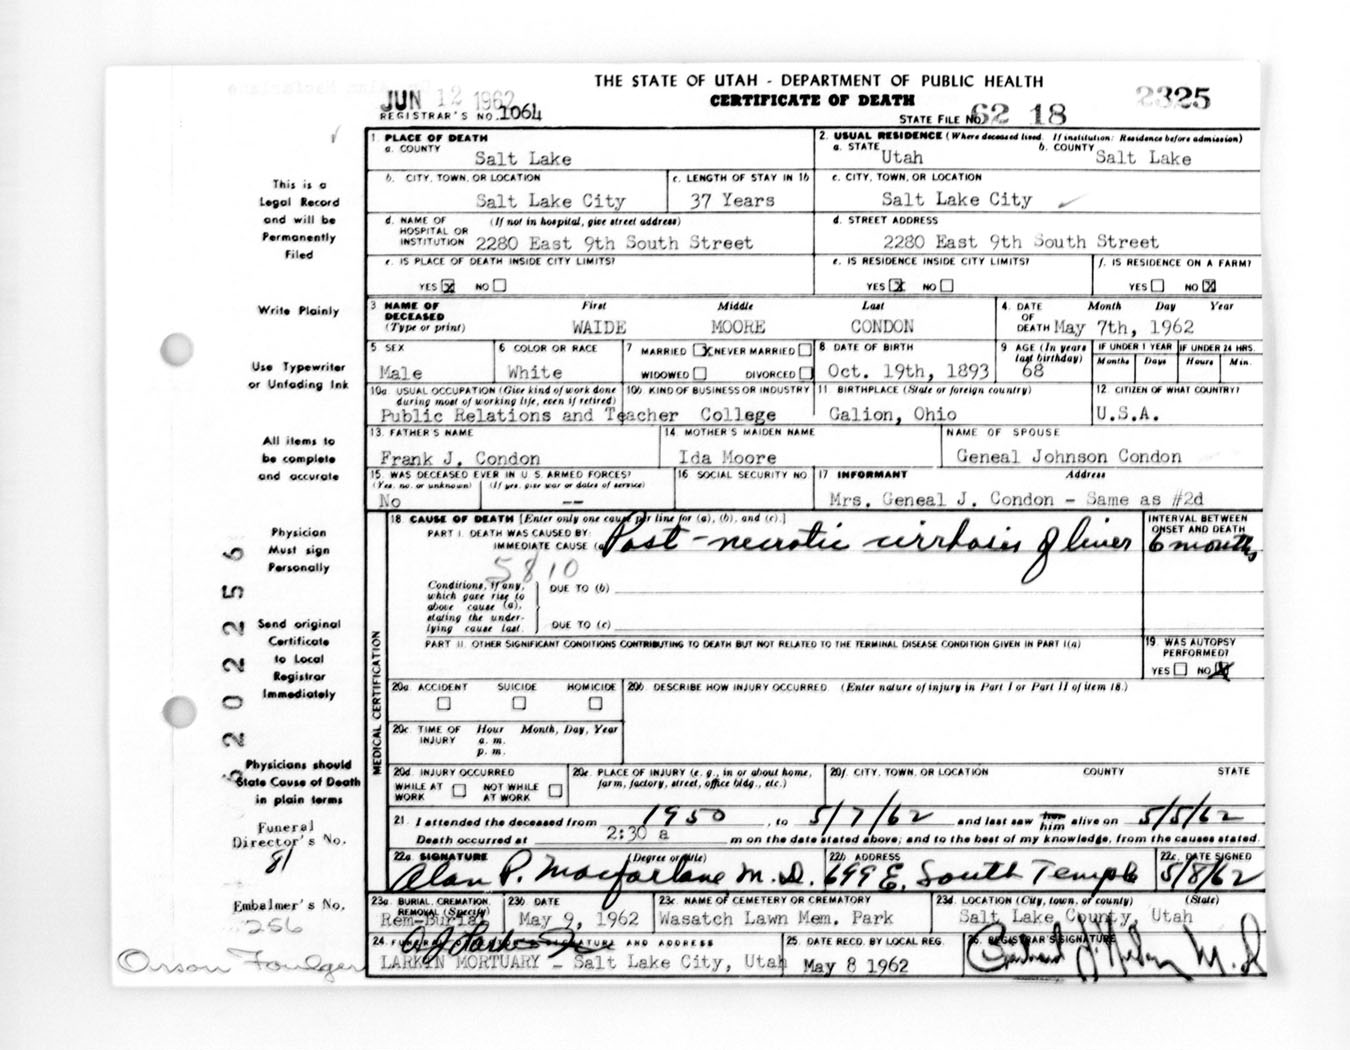 THE STATE OF UTAH - DEPARTMENT OF PUBLIC HEALTH
CERTIFICATE OF DEATH
JUN 12 1962
REGISTRAR'S NO. 1064
2325
STATE FILE NO. 62 18
1 PLACE OF DEATH
a. COUNTY Salt Lake
2. USUAL RESIDENCE (Where deceased lived. If institution: Residence before admission)
a. STATE Utah b. COUNTY Salt Lake
b. CITY, TOWN, OR LOCATION Salt Lake City
c. LENGTH OF STAY IN 1b 37 Years
c. CITY, TOWN, OR LOCATION Salt Lake City
d. NAME OF HOSPITAL OR INSTITUTION (If not in hospital, give street address) 2280 East 9th South Street
d. STREET ADDRESS 2280 East 9th South Street
e. IS PLACE OF DEATH INSIDE CITY LIMITS?
YES X NO
e. IS RESIDENCE INSIDE CITY LIMITS?
YES X NO
f. IS RESIDENCE ON A FARM?
YES NO X
3 NAME OF DECEASED (Type or print)
First Middle Last
WAIDE MOORE CONDON
4. DATE OF DEATH Month Day Year
May 7th, 1962
5 SEX Male
6 COLOR OR RACE White
7 MARRIED X NEVER MARRIED
WIDOWED DIVORCED
8 DATE OF BIRTH Oct. 19th, 1893
9 AGE (In years last birthday) 68
IF UNDER 1 YEAR Months Days
IF UNDER 24 HRS. Hours Min.
10a USUAL OCCUPATION (Give kind of work done during most of working life, even if retired)
Public Relations and Teacher
10b KIND OF BUSINESS OR INDUSTRY College
11 BIRTHPLACE (State or foreign country) Galion, Ohio
12 CITIZEN OF WHAT COUNTRY? U.S.A.
13. FATHER'S NAME Frank J. Condon
14 MOTHER'S MAIDEN NAME Ida Moore
NAME OF SPOUSE Geneal Johnson Condon
15. WAS DECEASED EVER IN U S ARMED FORCES?
(Yes, no, or unknown) (If yes, give war or dates of service)
No --
16 SOCIAL SECURITY NO.
17 INFORMANT Address
Mrs. Geneal J. Condon - Same as #2d
MEDICAL CERTIFICATION
18 CAUSE OF DEATH [Enter only one cause per line for (a), (b), and (c).]
PART I. DEATH WAS CAUSED BY:
IMMEDIATE CAUSE (a) Post-necrotic cirrhosis of liver
INTERVAL BETWEEN ONSET AND DEATH
6 months
5810
Conditions, if any, which gave rise to above cause (a), stating the underlying cause last.
DUE TO (b)
DUE TO (c)
PART II. OTHER SIGNIFICANT CONDITIONS CONTRIBUTING TO DEATH BUT NOT RELATED TO THE TERMINAL DISEASE CONDITION GIVEN IN PART I(a)
19 WAS AUTOPSY PERFORMED?
YES NO X
20a ACCIDENT SUICIDE HOMICIDE
20b DESCRIBE HOW INJURY OCCURRED. (Enter nature of injury in Part I or Part II of item 18.)
20c TIME OF INJURY Hour Month, Day, Year
a. m.
p. m.
20d. INJURY OCCURRED
WHILE AT WORK NOT WHILE AT WORK
20e. PLACE OF INJURY (e. g., in or about home, farm, factory, street, office bldg., etc.)
20f. CITY, TOWN, OR LOCATION COUNTY STATE
21. I attended the deceased from 1950, to 5/7/62 and last saw her him alive on 5/5/62
Death occurred at 2:30 a m on the date stated above; and to the best of my knowledge, from the causes stated.
22a SIGNATURE (Degree or title)
Alan P. Macfarlane M.D.
22b ADDRESS 699 E. South Temple
22c. DATE SIGNED 5/8/62
23a BURIAL, CREMATION, REMOVAL (Specify) Rem-Burial
23b DATE May 9, 1962
23c NAME OF CEMETERY OR CREMATORY Wasatch Lawn Mem. Park
23d. LOCATION (City, town, or county) (State)
Salt Lake County, Utah
24. FUNERAL SIGNATURE AND ADDRESS
LARKIN MORTUARY - Salt Lake City, Utah
25. DATE RECD. BY LOCAL REG. May 8 1962
26. REGISTRAR'S SIGNATURE
M.D.
This is a
Legal Record
and will be
Permanently
Filed
Write Plainly
Use Typewriter
or Unfading Ink
All items to
be complete
and accurate
Physician
Must sign
Personally
Send original
Certificate
to Local
Registrar
Immediately
Physicians should
State Cause of Death
in plain terms
Funeral
Director's No.
81
Embalmer's No.
256
Orson Foulger
52022256